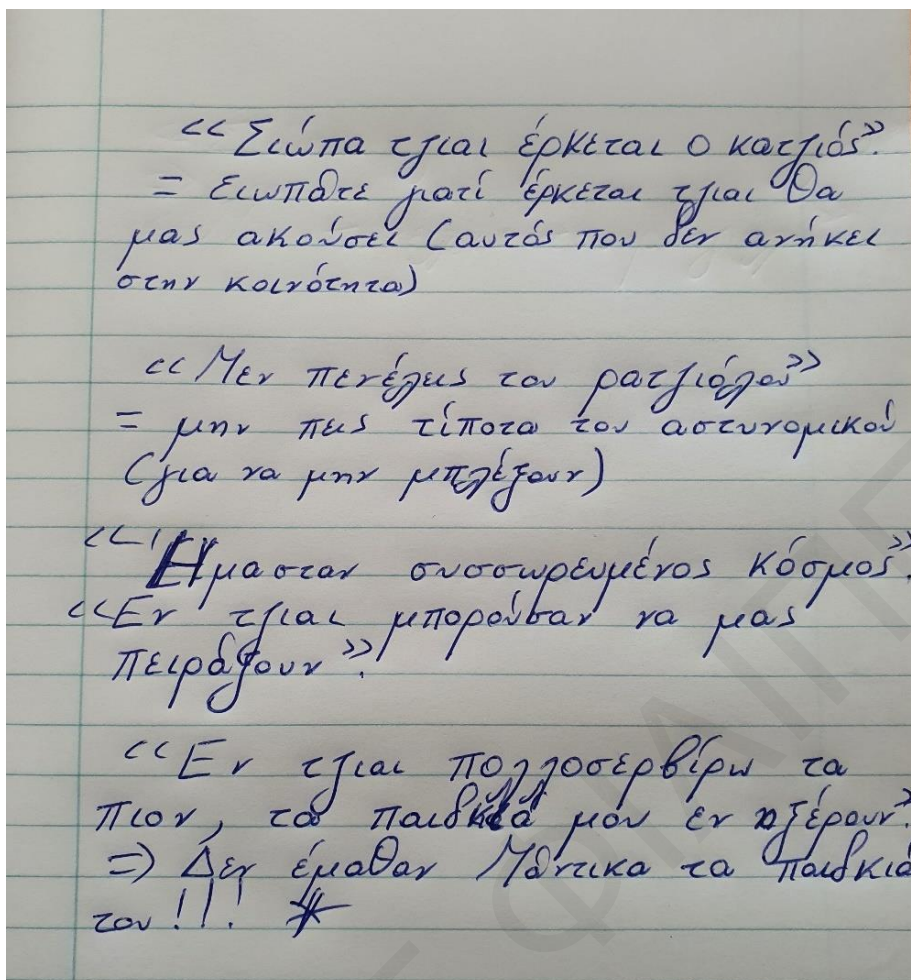 «Σιώπα τζιαι έρκεται ο κατζιός».
= Σιωπάτε γιατί έρκεται τζιαι θα
μας ακούσει (αυτός που δεν ανήκει
στην κοινότητα)
«Μεν πενέλεις του ρατζιόλου»
= μην πεις τίποτα του αστυνομικού
(για να μην μπλέξουν)
«Ήμασταν συσσωρευμένος κόσμος».
«Εν τζιαι μπορούσαν να μας
πειράξουν».
«Εν τζιαι πολλοσερβίρω τα
πιον, τα παιδκιά μου εν ηξέρουν».
=> Δεν έμαθαν Μάντικα τα παιδκιά
του!!! *
ΦΙΛΙΠΠ